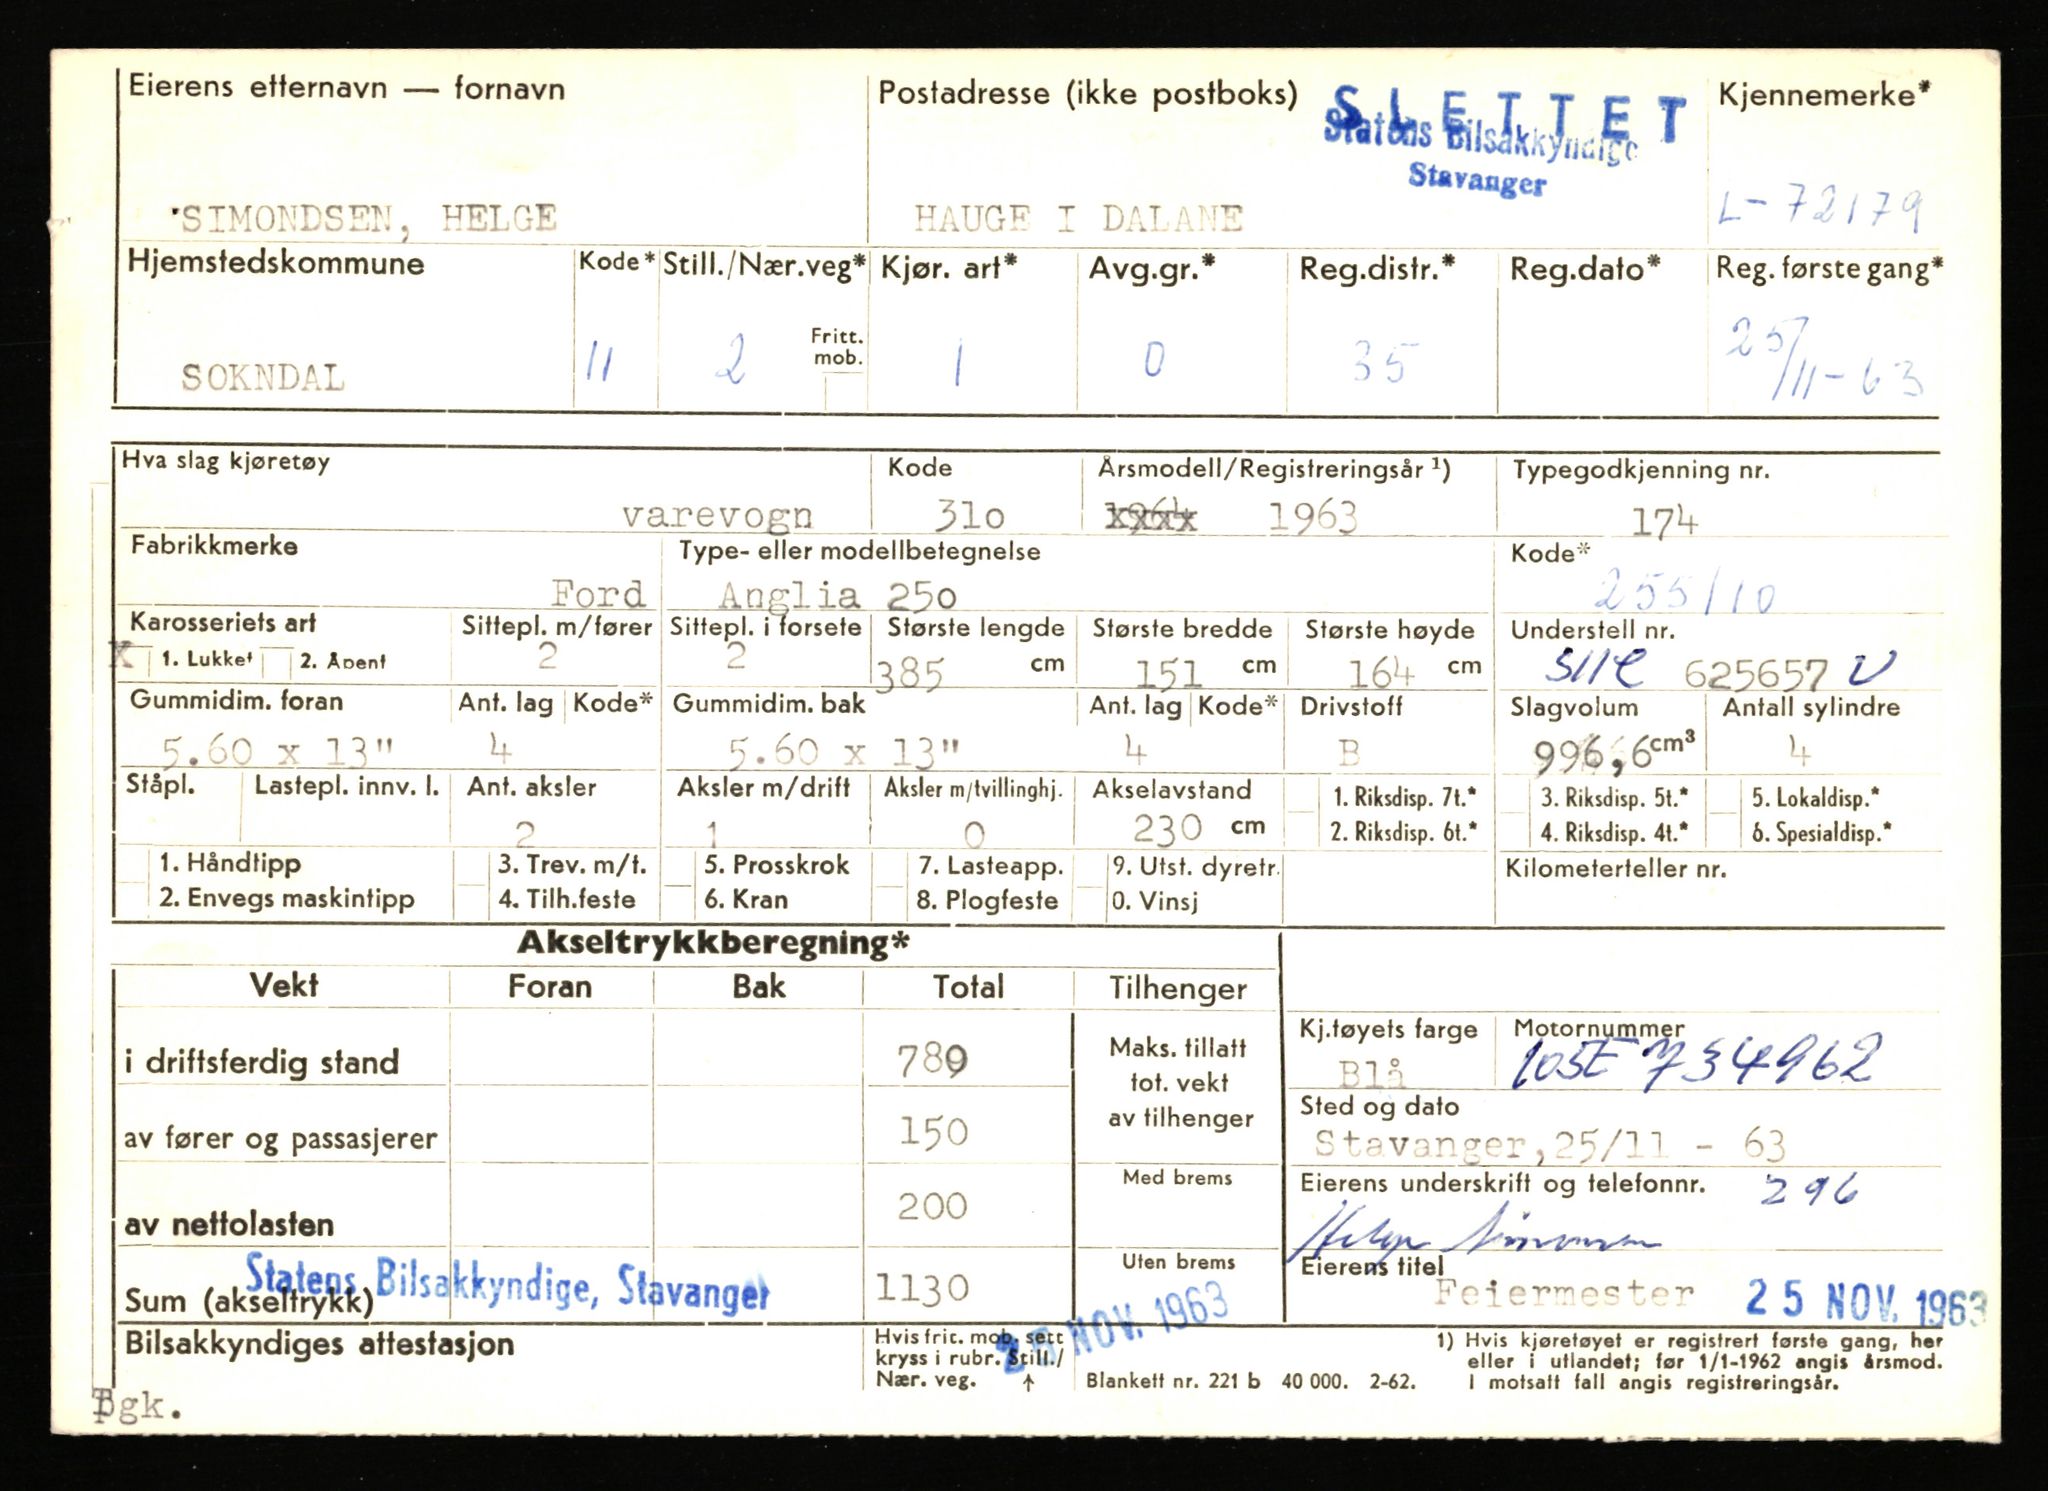 Eierens etternavn — fornavn
Postadresse (ikke postboks)
SLETTET
Statens Bilsakkyndige
Stavanger
Kjennemerke*
SIMONDSEN, HELGE
HAUGE I DALANE
L-72179
Hjemstedskommune
Kode*
Still./Nær.veg*
Kjør. art*
Avg.gr.*
Reg.distr.*
Reg.dato*
Reg. første gang*
SOKNDAL
11
2
Fritt. mob.
1
0
35
25/11-63
Hva slag kjøretøy
Kode
Årsmodell/Registreringsår ¹)
Typegodkjenning nr.
varevogn
310
1964 1963
174
Fabrikkmerke
Type- eller modellbetegnelse
Kode*
Ford
Anglia 250
255/10
Karosseriets art
Sittepl. m/fører
Sittepl. i forsete
Største lengde
Største bredde
Største høyde
Understell nr.
X 1. Lukket 2. Åpent
2
2
385 cm
151 cm
164 cm
625657
Gummidim. foran
Ant. lag
Kode*
Gummidim. bak
Ant. lag
Kode*
Drivstoff
Slagvolum
Antall sylindre
5.60 x 13"
4
5.60 x 13"
4
B
996,6 cm³
4
Ståpl.
Lastepl. innv. l.
Ant. aksler
Aksler m/drift
Aksler m/tvillinghj.
Akselavstand
1. Riksdisp. 7t.*
3. Riksdisp. 5t.*
5. Lokaldisp.*
2
1
0
230 cm
2. Riksdisp. 6t.*
4. Riksdisp. 4t.*
6. Spesialdisp.*
1. Håndtipp
3. Trev. m/t.
5. Prosskrok
7. Lasteapp.
9. Utst. dyretr.
Kilometerteller nr.
2. Envegs maskintipp
4. Tilh.feste
6. Kran
8. Plogfeste
0. Vinsj
Akseltrykkberegning*
Vekt
Foran
Bak
Total
Tilhenger
i driftsferdig stand
789
Maks. tillatt
tot. vekt
av tilhenger
Kj.tøyets farge
Blå
Motornummer
105E 734962
av fører og passasjerer
150
Sted og dato
Stavanger, 25/11 - 63
Med brems
Eierens underskrift og telefonnr. 296
av nettolasten
200
Helge Simonsen
Uten brems
Eierens titel
Feiermester
25 NOV. 1963
Statens Bilsakkyndige, Stavanger
Sum (akseltrykk)
1130
25 NOV. 1963
Bilsakkyndiges attestasjon
Hvis fric. mob. sett
kryss i rubr. Still./
Nær. veg. ↑
Blankett nr. 221 b 40 000. 2-62.
1) Hvis kjøretøyet er registrert første gang, her
eller i utlandet; før 1/1-1962 angis årsmod.
I motsatt fall angis registreringsår.
gk.